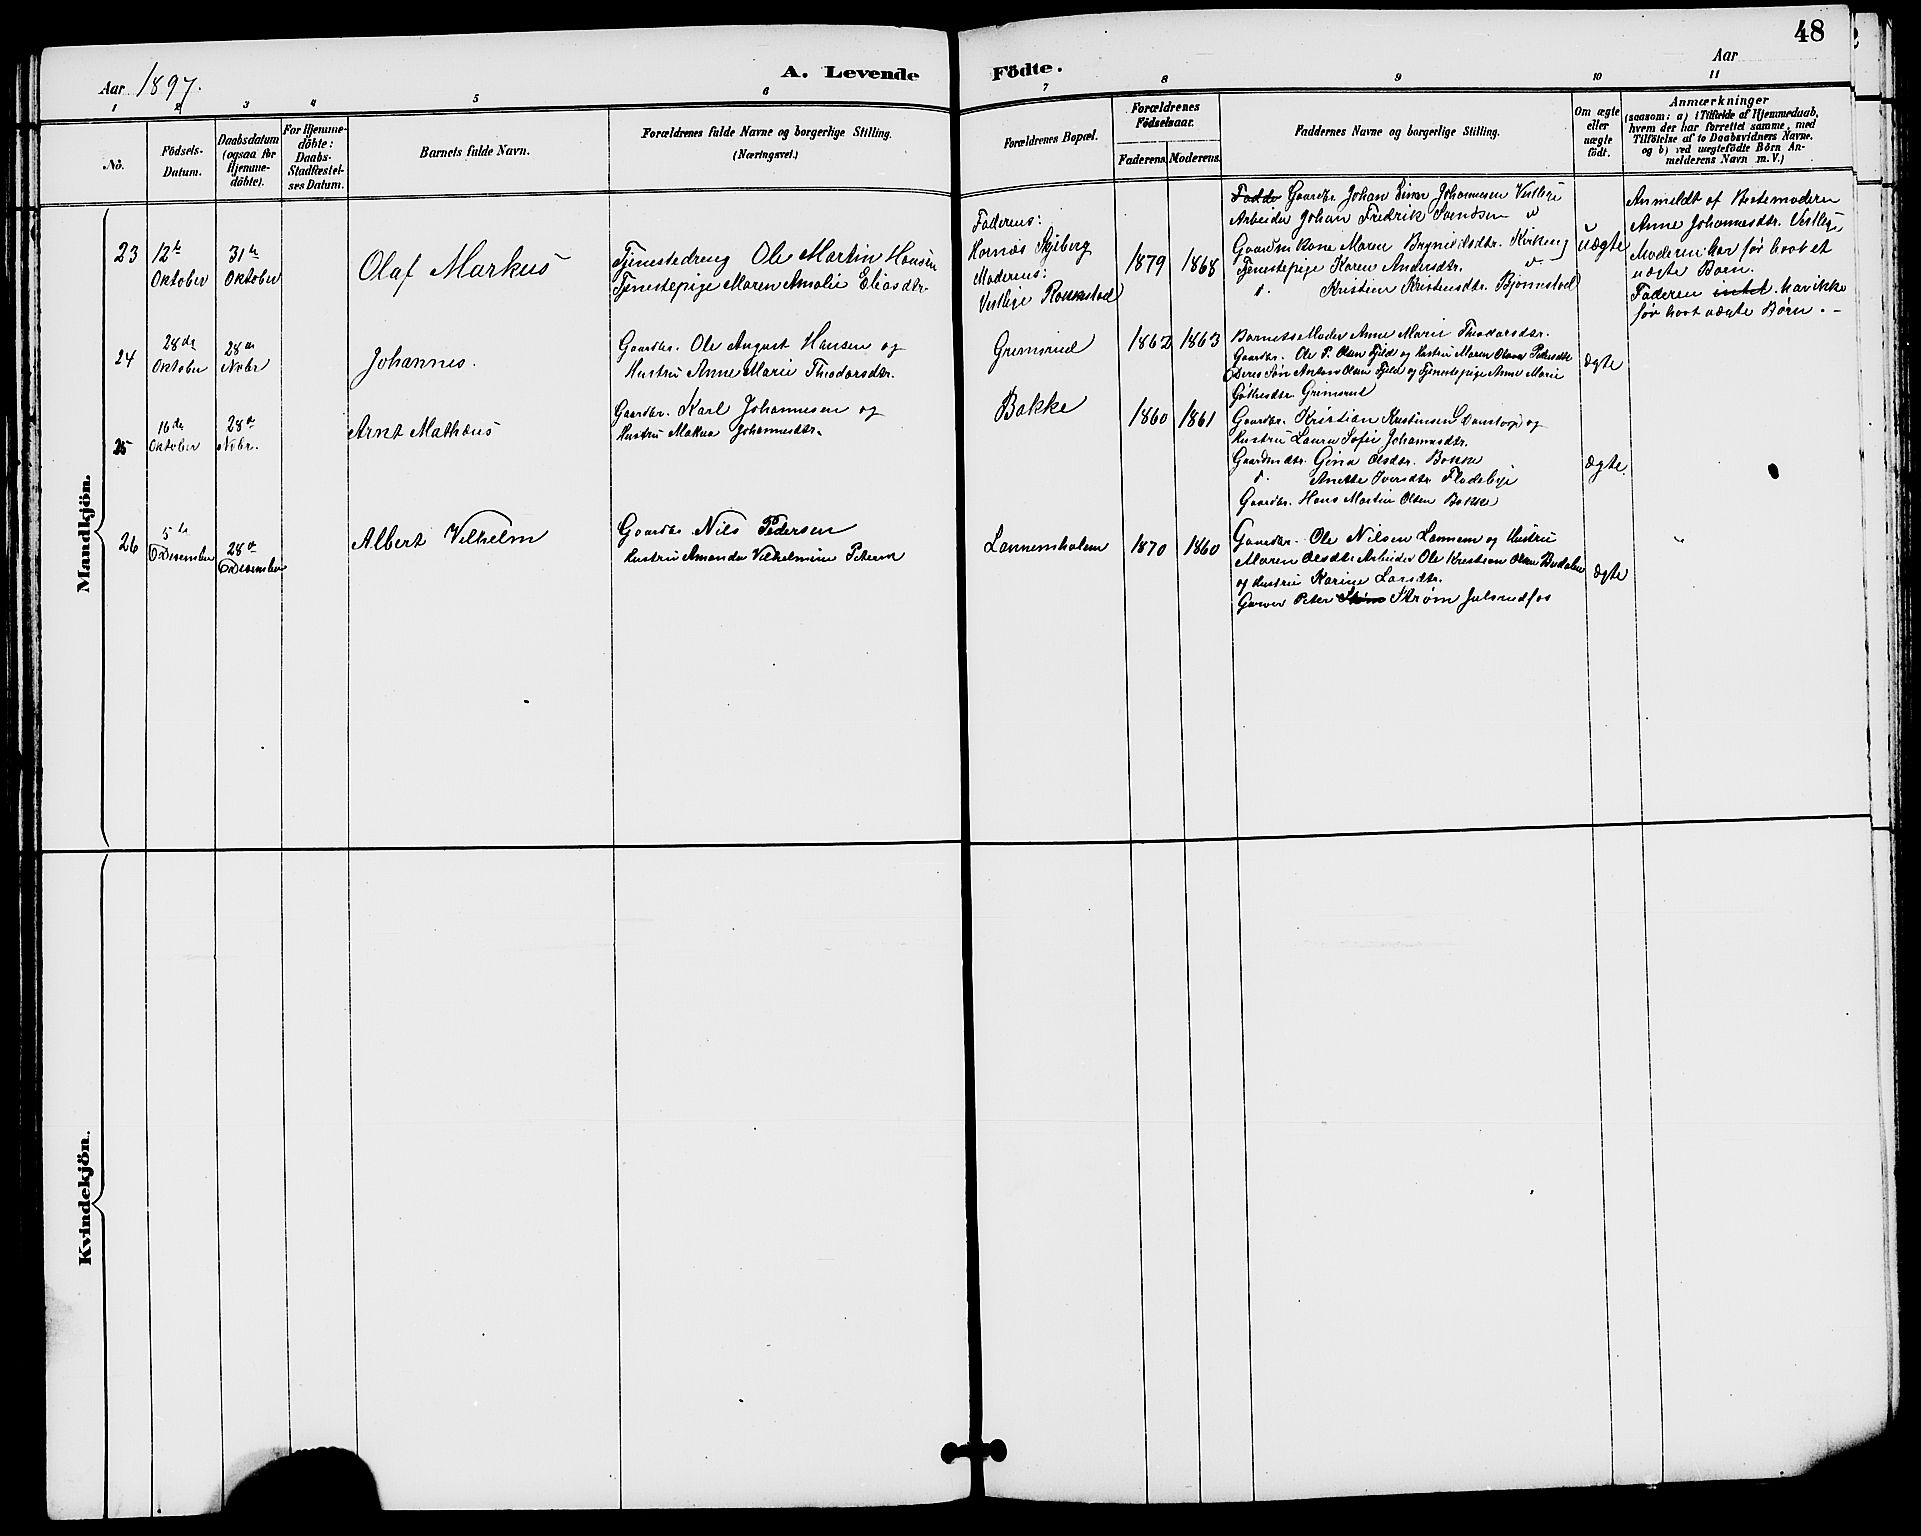 48
Aar 1897.
A. Levende Födte.
Aar
1 2 3 4 5 6 7 8 9 10 11
No.
Födsels-
Datum.
Daabsdatum
(ogsaa for
Hjemme-
döbte).
For Hjemme-
döbte:
Daabs-
Stadfæstel-
ses Datum.
Barnets fulde Navn.
Forældrenes fulde Navne og borgerlige Stilling.
(Næringsvei.)
Forældrenes Bopæl.
Forældrenes
Födselsaar.
Faderens. Moderens.
Faddernes Navne og borgerlige Stilling.
Om ægte
eller
uægte
født.
Anmærkninger
(saasom: a) i Tilfælde af Hjemmedaab,
hvem der har forrettet samme, med
Tilföielse af to Daabsvidners Navne,
og b) ved uægtefödte Börn An-
melderens Navn m. V.)
Mandkjön.
23
12te
Oktober
31te
Oktober
Olaf Markus
Tjenestedreng Ole Martin Hansen
Tjenestepige Maren Amalie Eliasdtr.
Faderens:
Hornæs Skjeberg
Moderens:
Vestlige Rokkestad
1879 1868
Gaardbr. Johan Johannesen Vestlige
Arbeider Johan Fredrik Svendsen
Gaardmkone Maren Brynildsdtr. Kirkeng
Tjenestepige Karen Andersdtr.
d. Kristine Kristensdtr. Bjønnstad
uægte
Anmeldt af Bestemoderen
Anne Johannesdtr. Vestlige
Moderen har før havt et
uægte Barn.
Faderen intet har ikke
før havt uægte Børn.
24
28de
Oktober
28de
Nvbr
Johannes.
Gaardbr. Ole August Hansen og
Hustru Anne Marie Theodorsdtr.
Grimsrud
1862 1863
Barnets Moder Anne Marie Theodorsdtr.
Gaardbr. Ole P. Olsen Fjeld og Hustru Maren Olava Pedersdtr
Deres Søn Anton Olsen Fjeld og Tjenestepige Anne Marie
Grimsrud
ægte
25
16de
Oktober
28de
Nvbr.
Arnt Mathæus
Gaardbr. Karl Johannesen og
Hustru Johannesdtr.
Bakke
1860 1861
Gaardbr. Kristian Kristensen og
Hustru Laura Sofie Johannesdtr.
Gaardmdtr. Gina Olsdtr. Bakke
d. Anette Iversdtr. Flodebye
Gaardbr. Hans Martin Olsen Bakke
ægte.
26
5te
Desember
28de
Desember
Albert Vilhelm
Gaardbr Nils Pedersen
Hustru Amanda Vilhelmine
Lannemholem
1870 1860
Gaardbr. Ole Nilsen Lannem og Hustru
Maren Olsdtr Arbeider Ole Kristian Olsen Budalen
og Hustru Karine Larsdtr.
Garver Peter Strøm Julsrudfos
ægte
Kvindekjön.